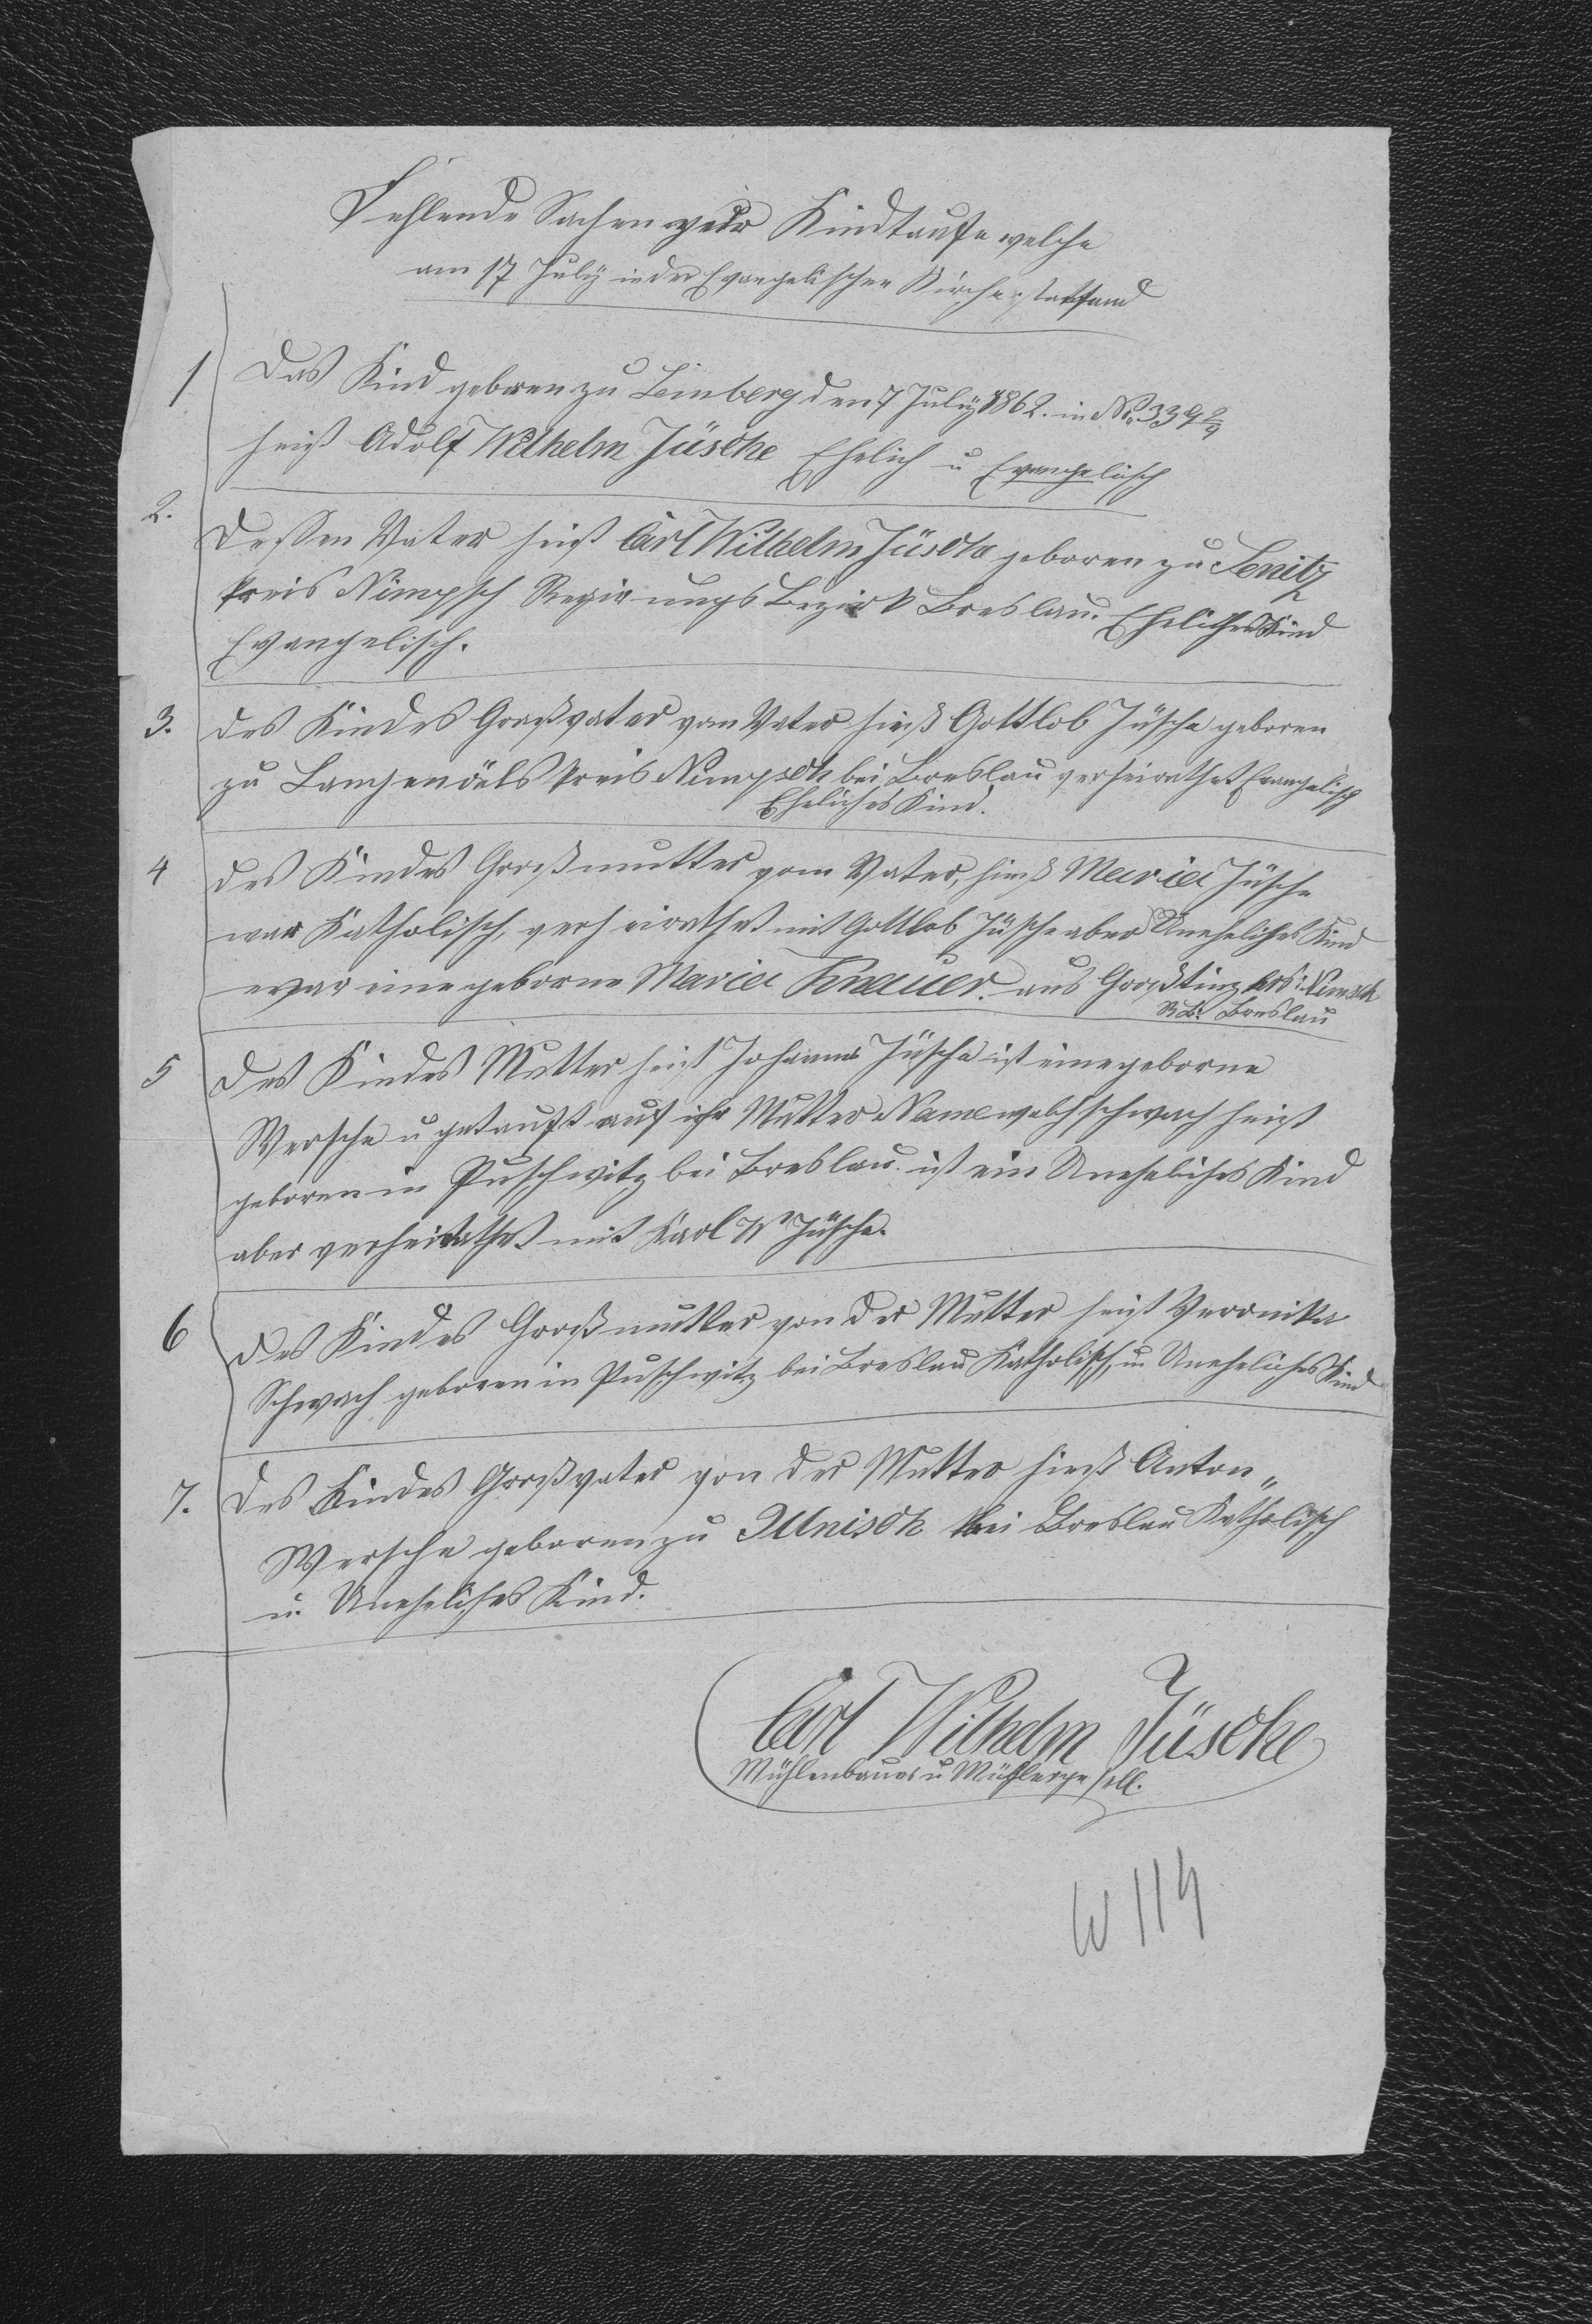 Fehlende Sachen zur Kindtaufe welche
am 17 July in der Evangelischen Kirche stattfand
1 Das Kind geboren zu Lemberg den 7 July 1862. in No. 339 2/4
heist Adolf Wilhelm Jüsche Ehelich u Evangelisch
2. Dessen Vater heist Carl Wilhelm Jüsche geboren zu Senitz
Kreis Nimpsch Regirungs Bezirk Breslau. Eheliches Kind
Evangelisch.
3. Des Kindes Großvater vom Vater hieß Gottlob Jüsche geboren
zu Langenöls Kreis Nimpsch bei Breslau verheirathet Evangelisch
Eheliches Kind.
4 Des Kindes Großmutter vom Vater, hieß Maria Jüsche
war Katholisch, verheirathet mit Gottlob Jüsche aber Uneheliches Kind
war eine geborne Maria Knauer. aus Großtinz Krs: Nimsch
R. B: Breslau
5 Des Kindes Mutter heist Johanna Jüsche ist eine geborne
Wersche u getauft auf ihr Mutter Name welch schwach heist
geboren in Puschwitz bei Breslau. ist ein Uneheliches Kind
aber verheirathet mit Karl Wm Jüsche.
6 Des Kindes Großmutter von der Mutter heist Veronika
Schwach geboren in Puschwitz bei Breslau Katholisch, u. Uneheliches Kind
7. Des Kindes Großvater von der Mutter hieß Anton„
Wersche geboren zu bei Breslau Katholisch
u. Uneheliches Kind.
Carl Wilhelm Jüsche
Mühlenbauer u Müllergesell.
W 114